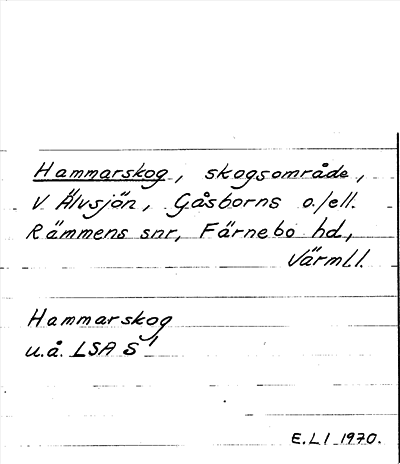 Hammarskog, skogsområde,
V. Älvsjön, Gåsborns o./ell.
Rämmens snr, Färnebo hd,
Värml.
Hammarskog
u.å. LSA S
E.L 1970.